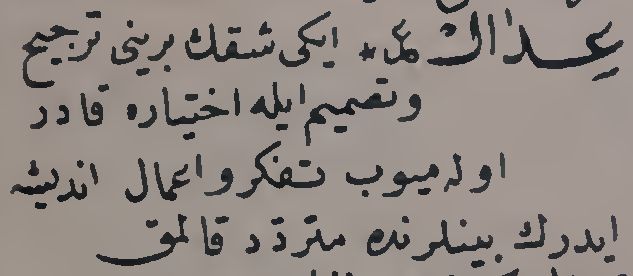 عدال ایکی شقك برینی ترجیح
و تصمیم ایله اختیاره قادر
اوله میوب تفکر و اعمال اندیشه
ایدرك بینلرنده متردّد قالمق